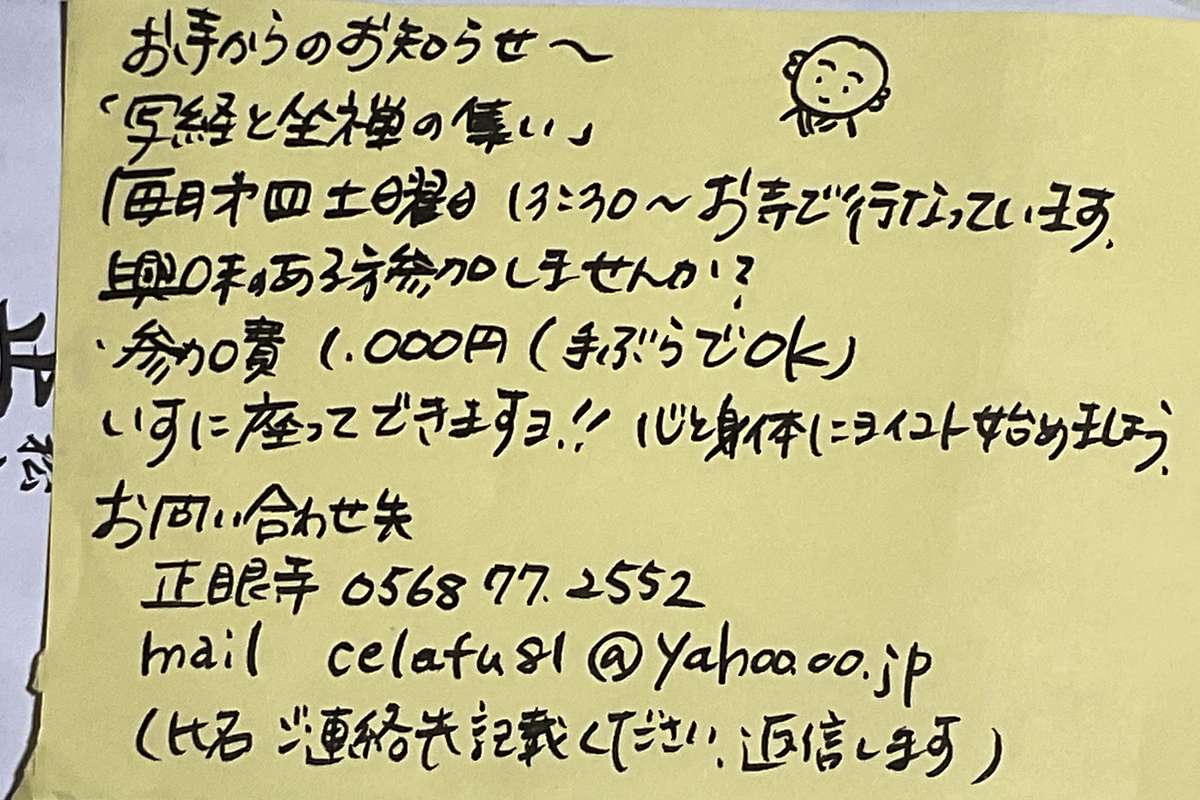 お寺からのお知らせ〜
「写経と坐禅の集い」
毎月第四土曜日 13:30〜お寺で行なっています。
興味のある方参加しませんか?
・参加費 1.000円(手ぶらでOK)
いすに座ってできますヨ!! 心と身体にヨイコト始めましょう。
お問い合わせ先
正眼寺 0568 77.2552
mail celafu81@yahoo.co.jp
(氏名 ご連絡先記載ください。返信します)
正